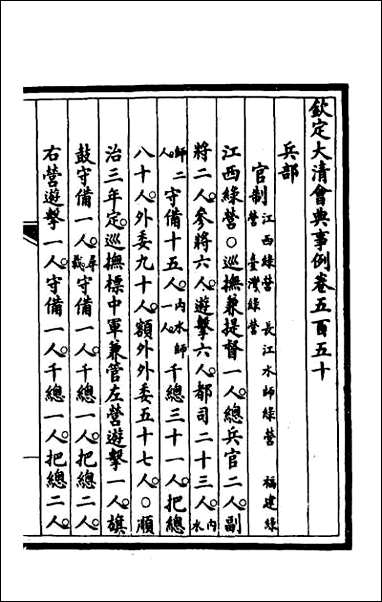 欽定大清會典事例卷五百五十
兵部
官制江西綠營 長江水師綠營 福建綠營 臺灣綠營
江西綠營○巡撫兼提督一人。總兵官二人。副
將二人。參將六人。遊擊六人。都司二十三人。內水
師二人。守備十五人。內水師一人。千總三十一人。把總
八十人。外委九十人。額外外委五十七人。○順
治三年定。巡撫標中軍兼管左營遊擊一人。旗
鼓守備一人。尋裁。守備一人。千總一人。把總二人。
右營遊擊一人。守備一人。千總一人。把總二人。